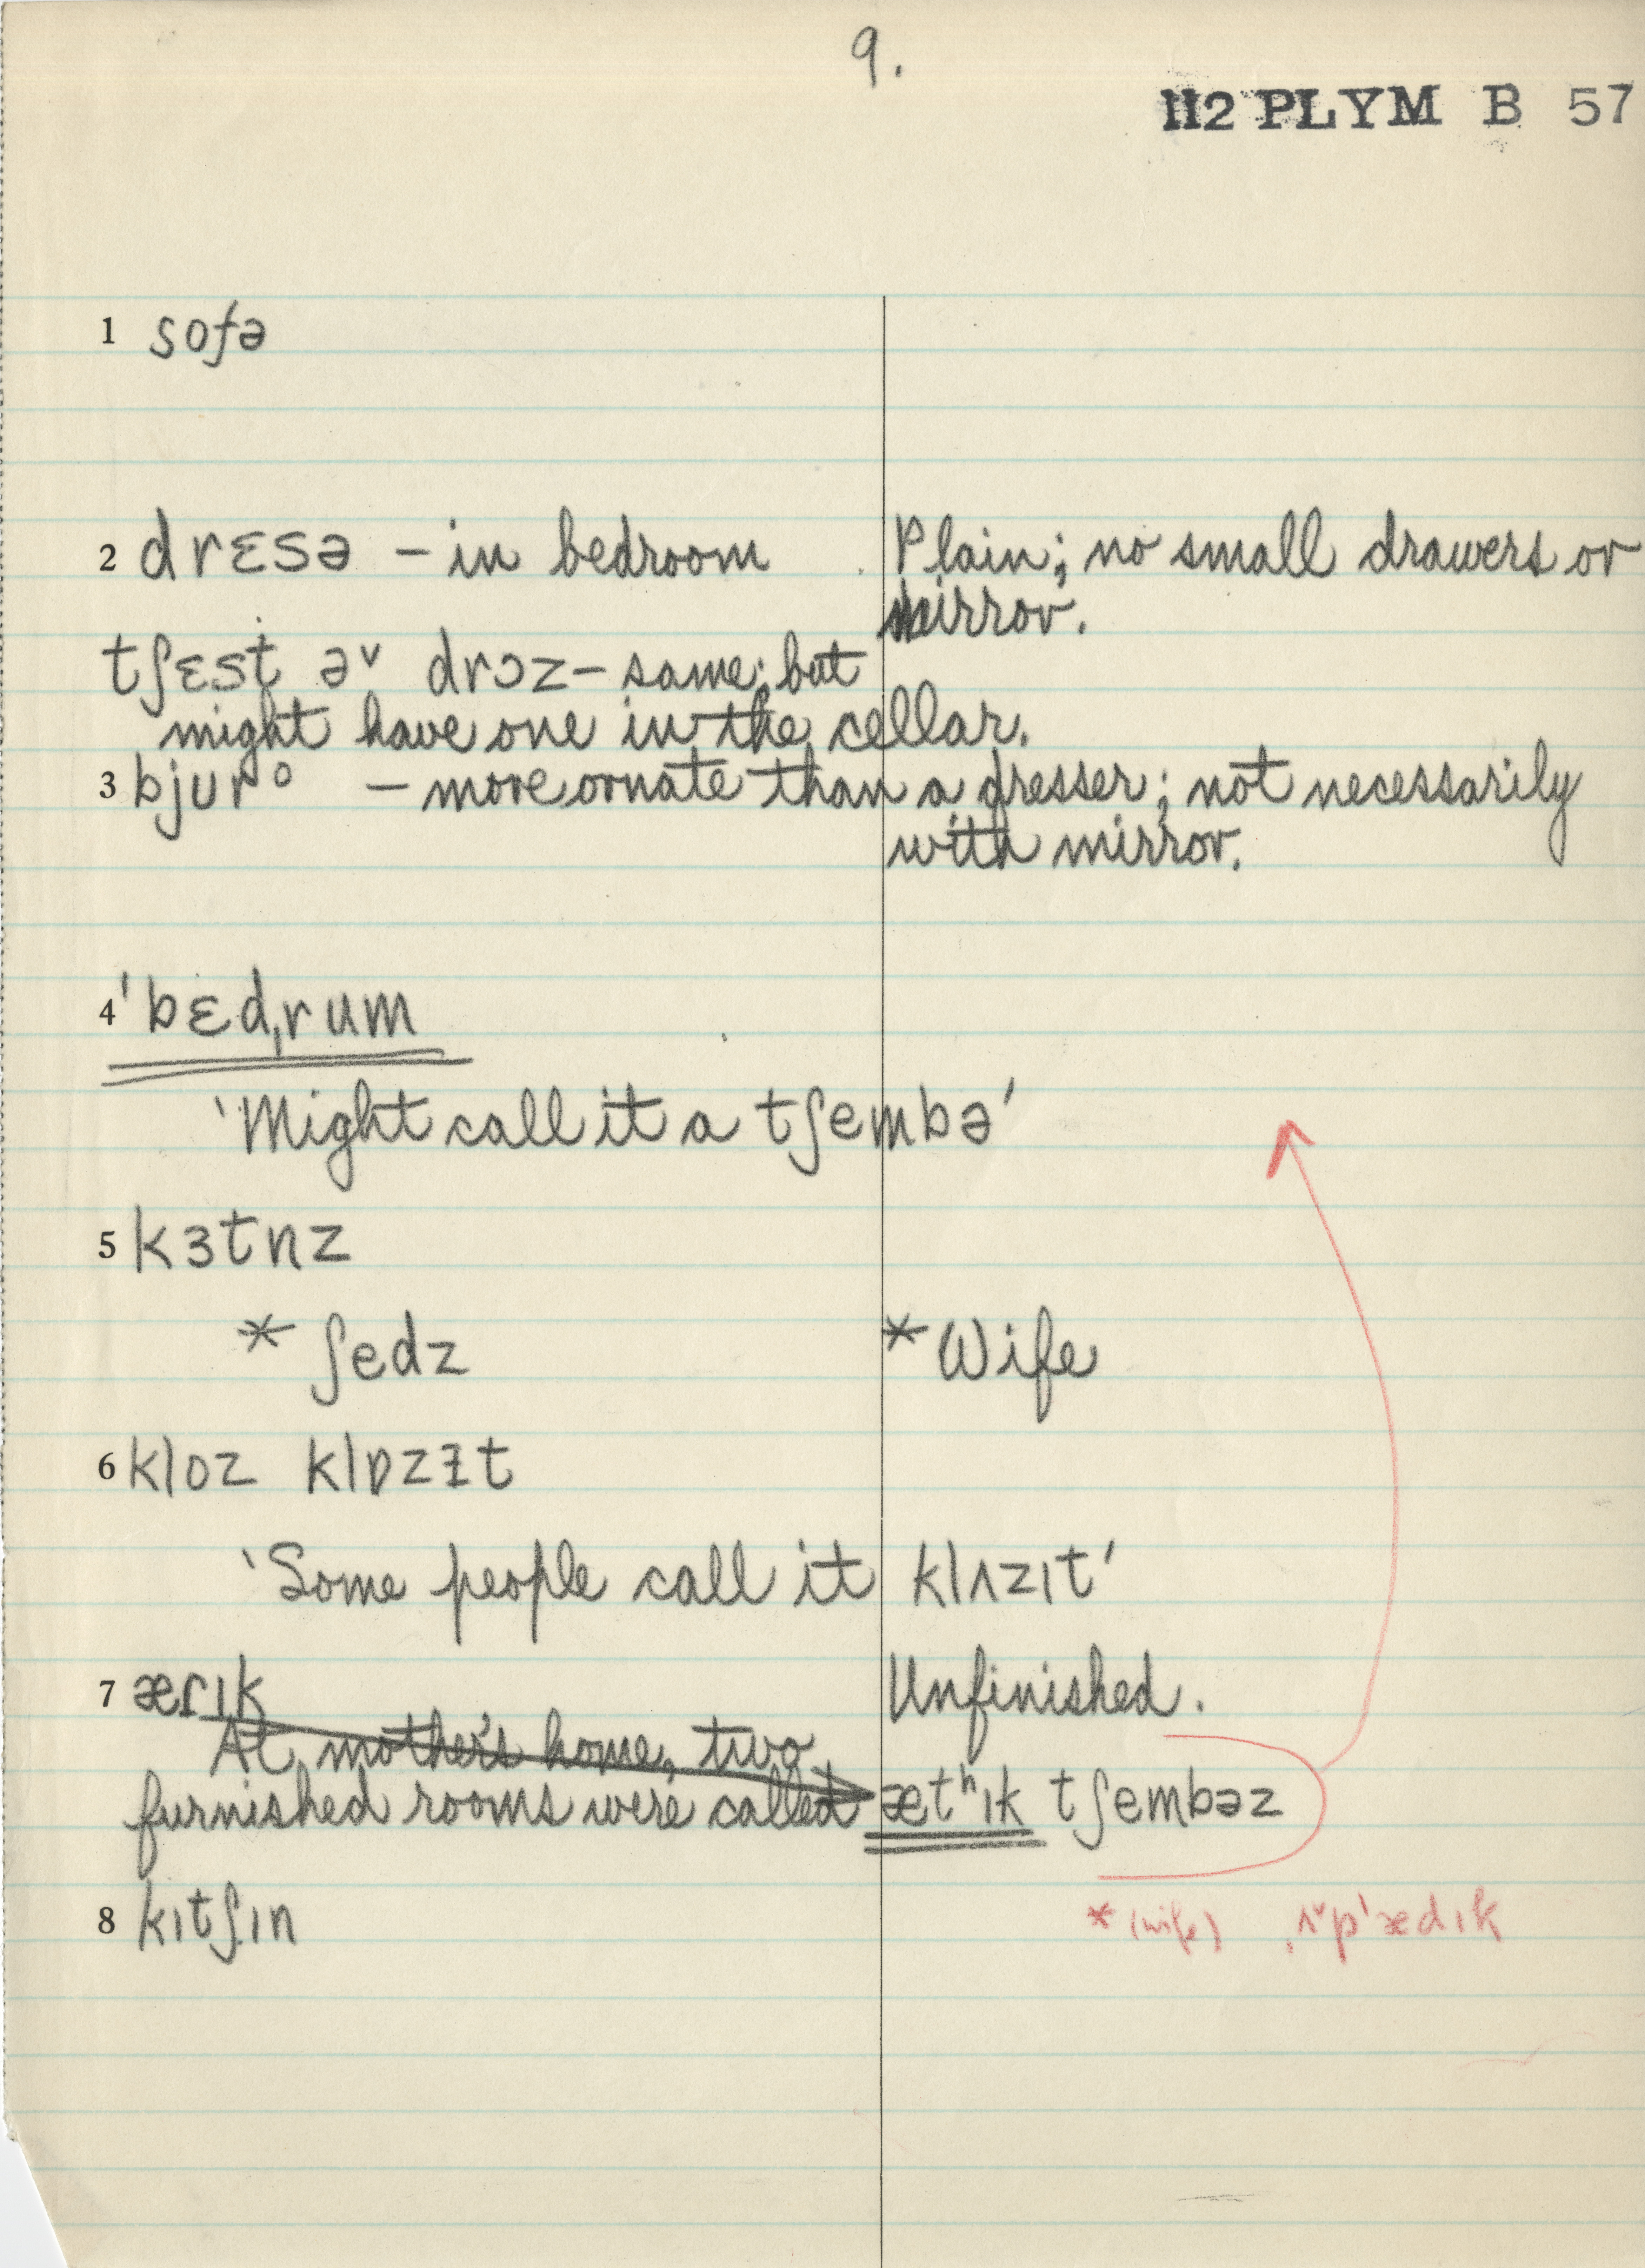 9.
112 PLYM B 57
1 sofə
2 drɛsə – in bedroom Plain; no small drawers or
mirror.
tʃɛst əᵛ drɔz – same; but
might have one in the cellar.
3 bjurᵒ – more ornate than a dresser; not necessarily
with mirror.
4 ˈbɛdˌrum
'Might call it a tʃembə'
5 kɜtnz
* ʃedz * Wife
6 kloz klɒzɪt
'Some people call it klʌzɪt'
7 æɾɪk Unfinished.
At mother's home, two
furnished rooms were called ætʰɪk tʃembəz
8 kɪtʃɪn
* (wife) ˌʌᵛpˈædɪk